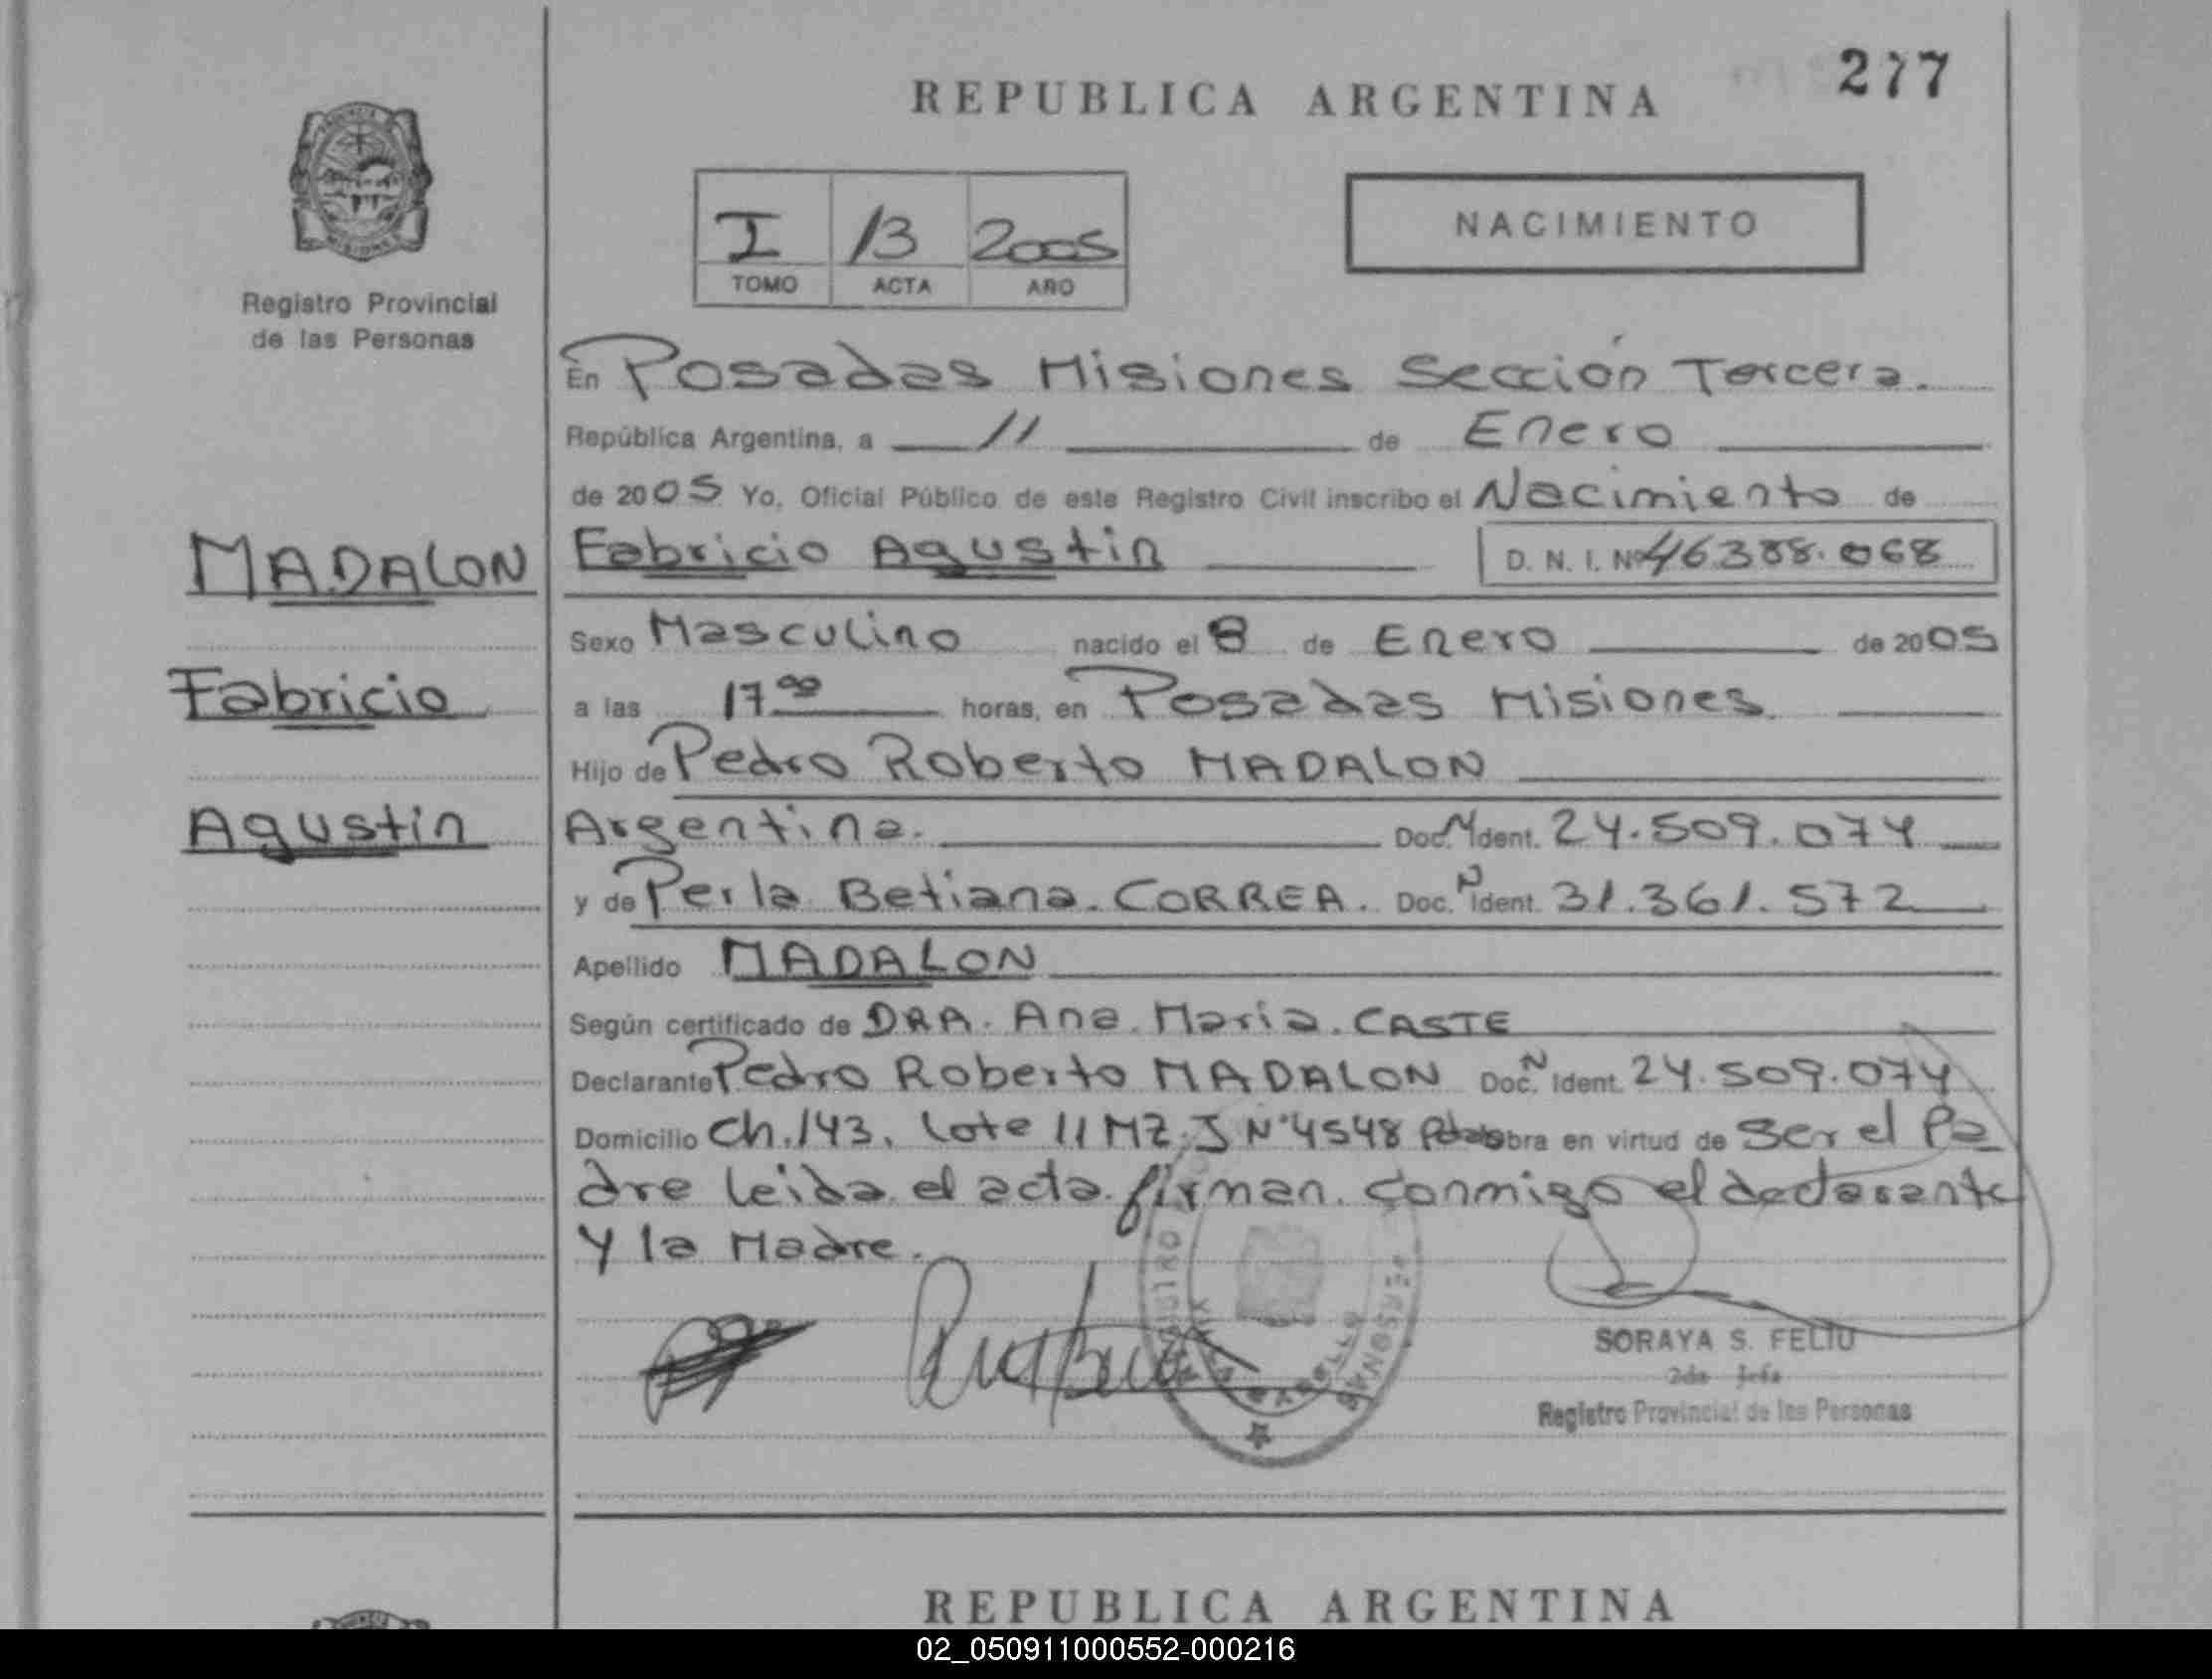 277
REPUBLICA ARGENTINA
I 13 2005
TOMO ACTA AÑO
NACIMIENTO
Registro Provincial
de las Personas
En Posadas Misiones Sección Tercera.
República Argentina, a 11 de Enero
de 2005 Yo, Oficial Público de este Registro Civil inscribo el Nacimiento de
MADALON
Fabricio Agustin D. N. I. Nº 46388.068
Sexo Masculino nacido el 8 de Enero de 2005
Fabricio
a las 17 00 horas, en Posadas Misiones.
Hijo de Pedro Roberto MADALON
Agustin
Argentina. Doc. N Ident. 24.509.074
y de Perla Betiana. CORREA. Doc. N Ident. 31.361.572
Apellido MADALON
Según certificado de DRA. Ana. Maria. CASTE
Declarante Pedro Roberto MADALON Doc. N Ident. 24.509.074
Domicilio Ch. 143. Lote 11 MZ. J Nº 4548 obra en virtud de ser el Pa
dre leida el acta firman conmigo el declarante
y la Madre.
SORAYA S. FELIU
2da Jefa
Registro Provincial de las Personas
REPUBLICA ARGENTINA
02_050911000552-000216